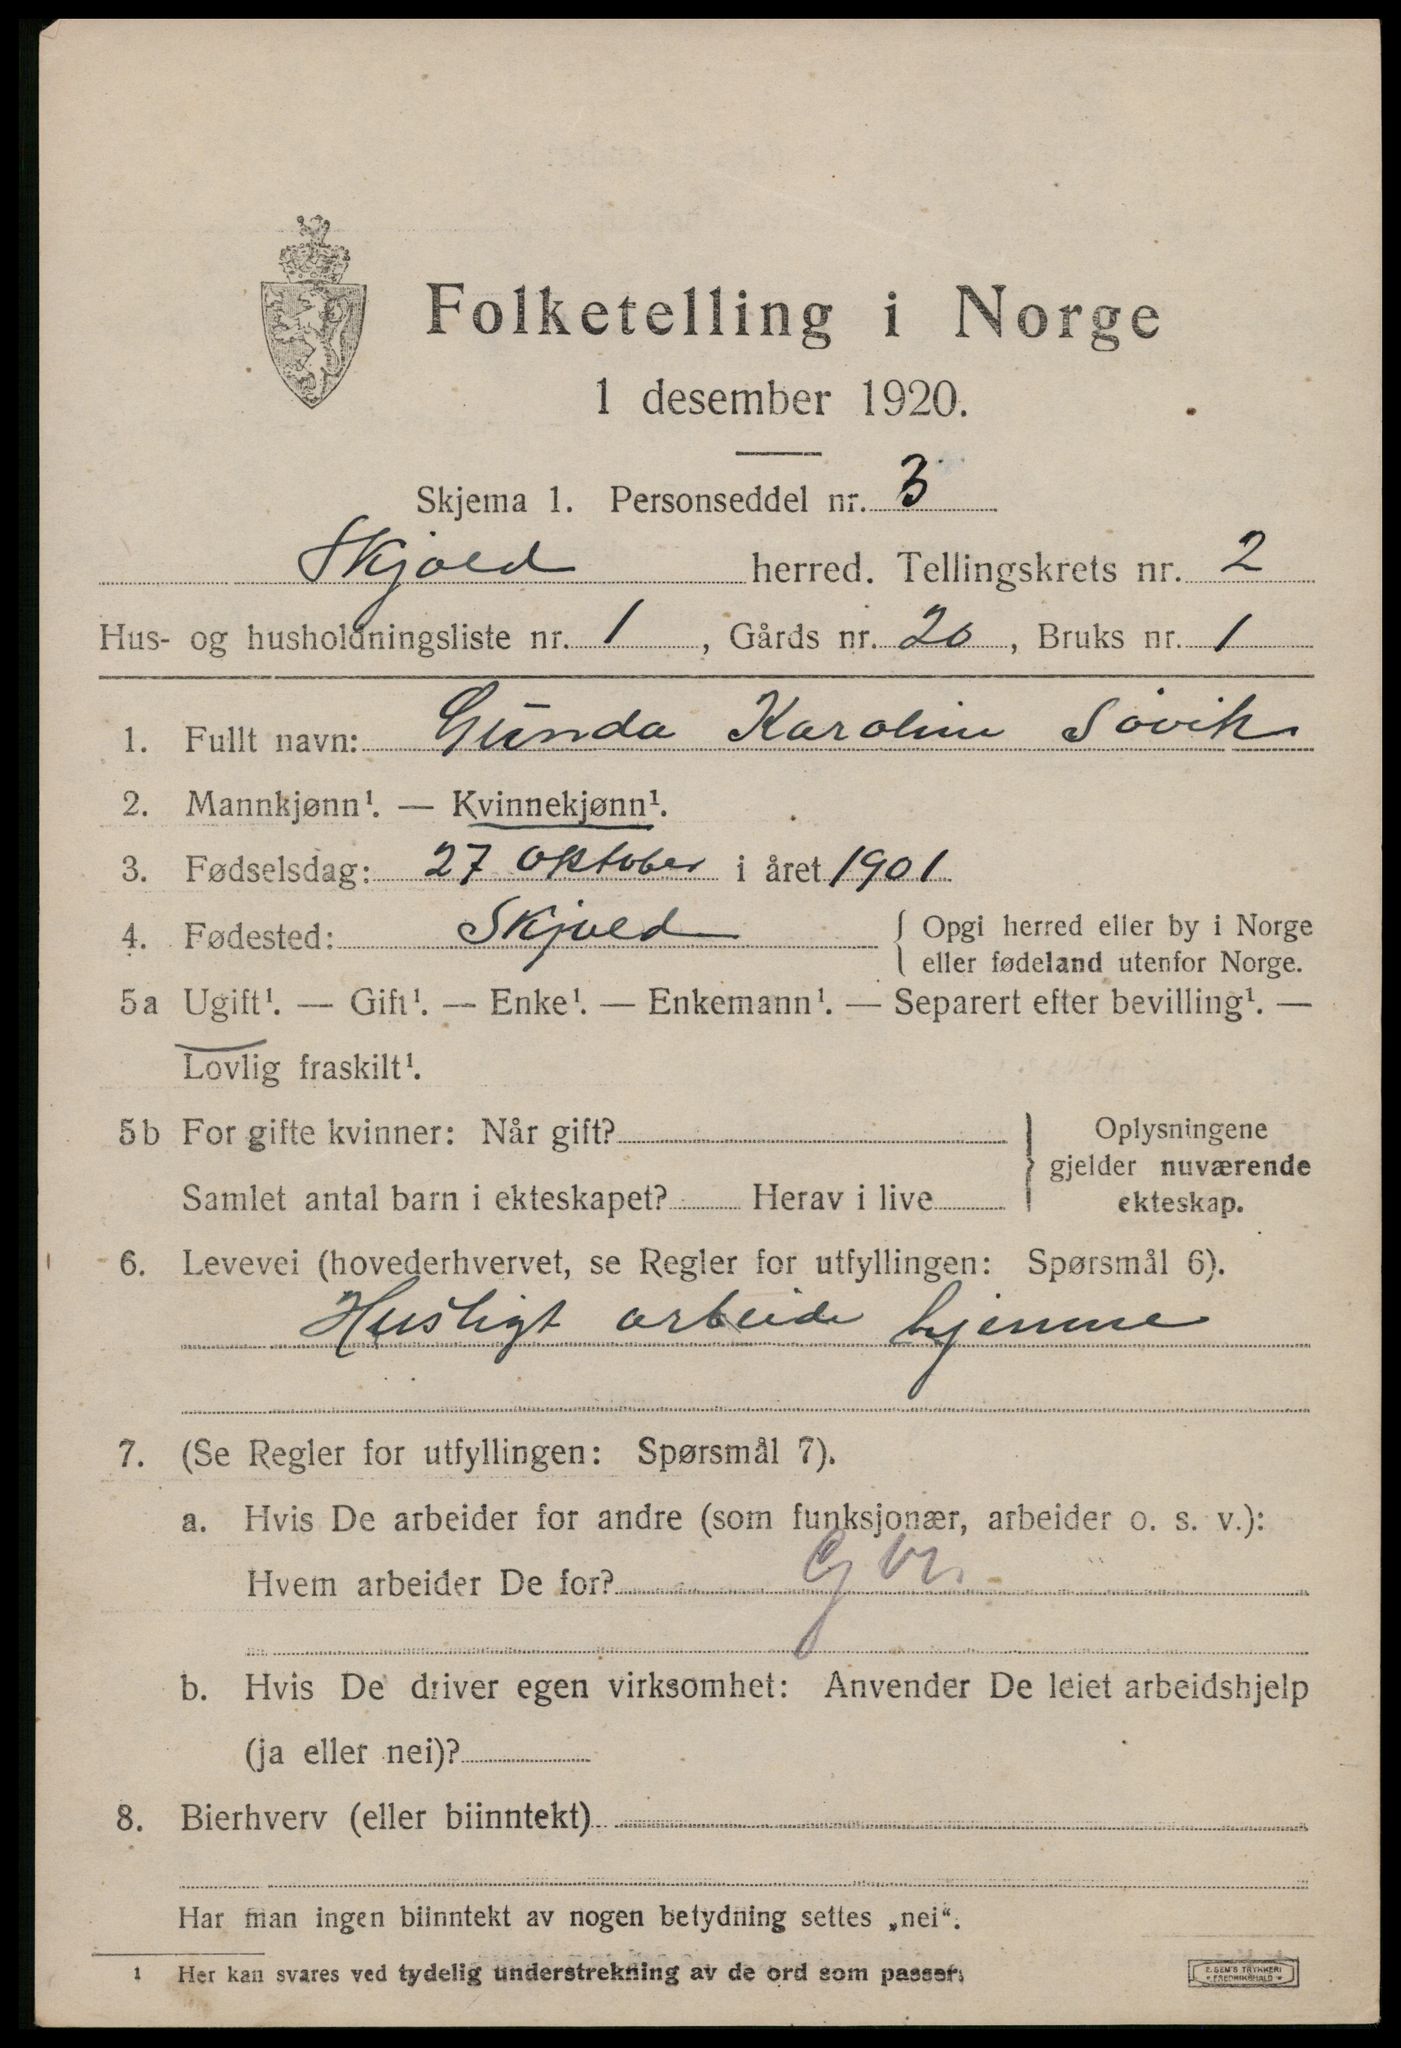 Folketelling i Norge
1 desember 1920.
Skjema 1. Personseddel nr. 3
Skjold herred. Tellingskrets nr. 2
Hus- og husholdningsliste nr. 1, Gårds nr. 20, Bruks nr. 1
1. Fullt navn: Gunda Karoline Søvik
2. Mannkjønn¹. — Kvinnekjønn¹.
3. Fødselsdag: 27 oktober i året 1901
4. Fødested: Skjold { Opgi herred eller by i Norge
eller fødeland utenfor Norge.
5a Ugift¹. — Gift¹. — Enke¹. — Enkemann¹. — Separert efter bevilling¹. —
Lovlig fraskilt¹.
5b For gifte kvinner: Når gift? } Oplysningene
gjelder nuværende
Samlet antal barn i ekteskapet? Herav i live ekteskap.
6. Levevei (hovederhvervet, se Regler for utfyllingen: Spørsmål 6).
Husligt arbeide hjemme
7. (Se Regler for utfyllingen: Spørsmål 7).
a. Hvis De arbeider for andre (som funksjonær, arbeider o. s. v.):
Hvem arbeider De for?
b. Hvis De driver egen virksomhet: Anvender De leiet arbeidshjelp
(ja eller nei)?
8. Bierhverv (eller biinntekt)
Har man ingen biinntekt av nogen betydning settes „nei“.
1 Her kan svares ved tydelig understrekning av de ord som passer.
E. SEM'S TRYKKERI
FREDRIKSHALD